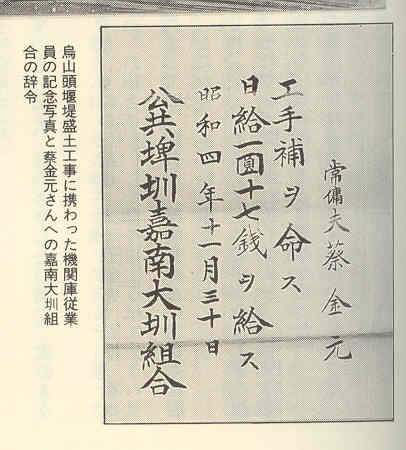 常傭夫 蔡金元
工手補ヲ命ス
日給一圓十七銭ヲ給ス
昭和四年十一月三十日
公共埤圳嘉南大圳組合
烏山頭堰堤盛土工事に携わった機関庫従業
員の記念写真と蔡金元さんへの嘉南大圳組
合の辞令